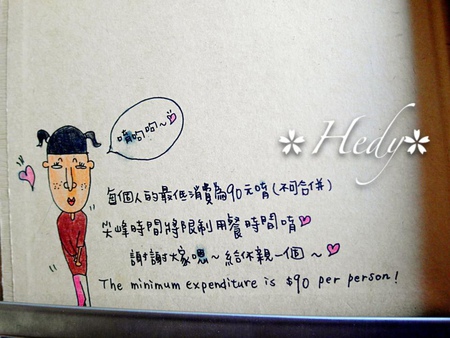 唷呵呵~
✲ Hedy ✲
每個人的最低消費為90元唷(不可合併)
尖峰時間將限制用餐時間唷
謝謝大家嗯~給你親一個~
The minimum expenditure is $90 per person!